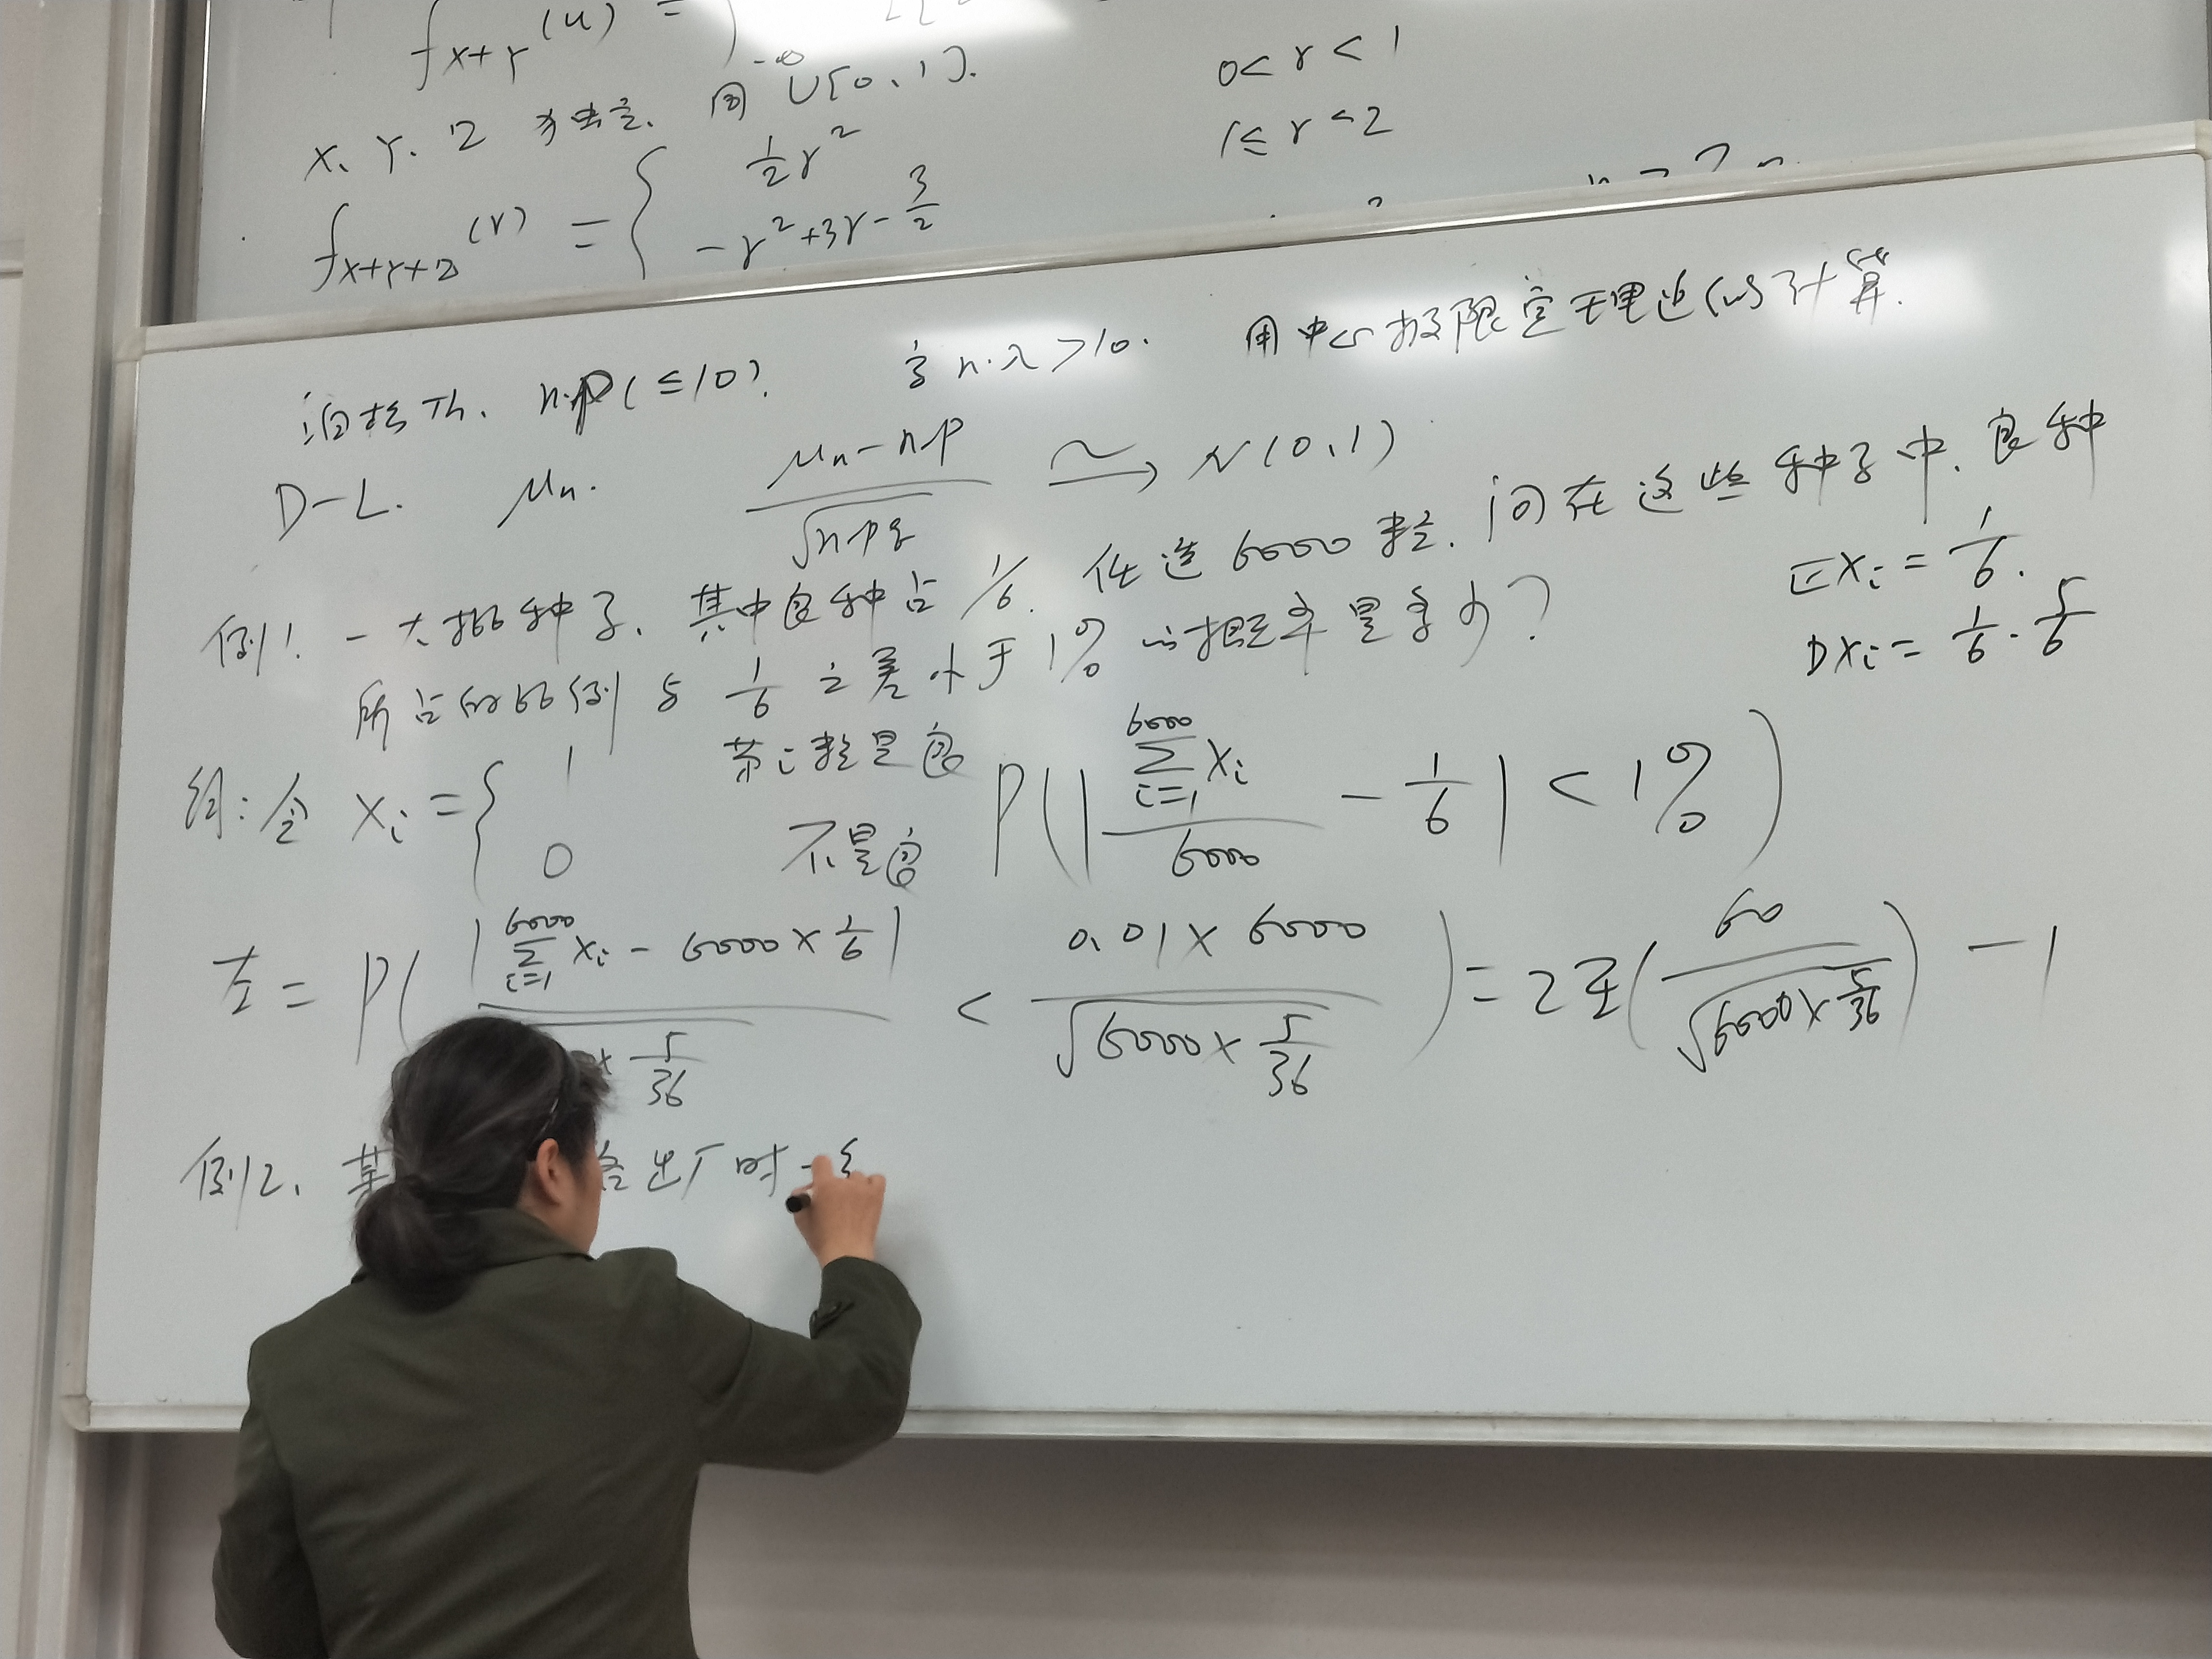 f_{X+Y}(u) =
X、Y、Z 为独立、同 U[0,1].
f_{X+Y+Z}(r) = { ½r² 0<r<1
-r²+3r-3/2 1≤r<2
泊松Th. n·p(≤10). 当 n·λ>10. 用中心极限定理近似计算.
D-L. μn. (μn-np)/√(npq) ≃→ N(0,1)
例1. 一大批种子、其中良种占 1/6. 任选 6000粒. 问在这些种子中、良种
所占的比例与 1/6 之差小于1%的概率是多少?
EXi = 1/6.
DXi = 1/6 · 5/6
解: 令 Xi = { 1 第i粒是良
0 不是良
P(|∑_{i=1}^{6000} Xi / 6000 - 1/6| < 1%)
左 = P( |∑_{i=1}^{6000} Xi - 6000×1/6| / × 5/36 < 0.01×6000 / √(6000×5/36) ) = 2Φ(60/√(6000×5/36)) - 1
例2. 某 出厂时